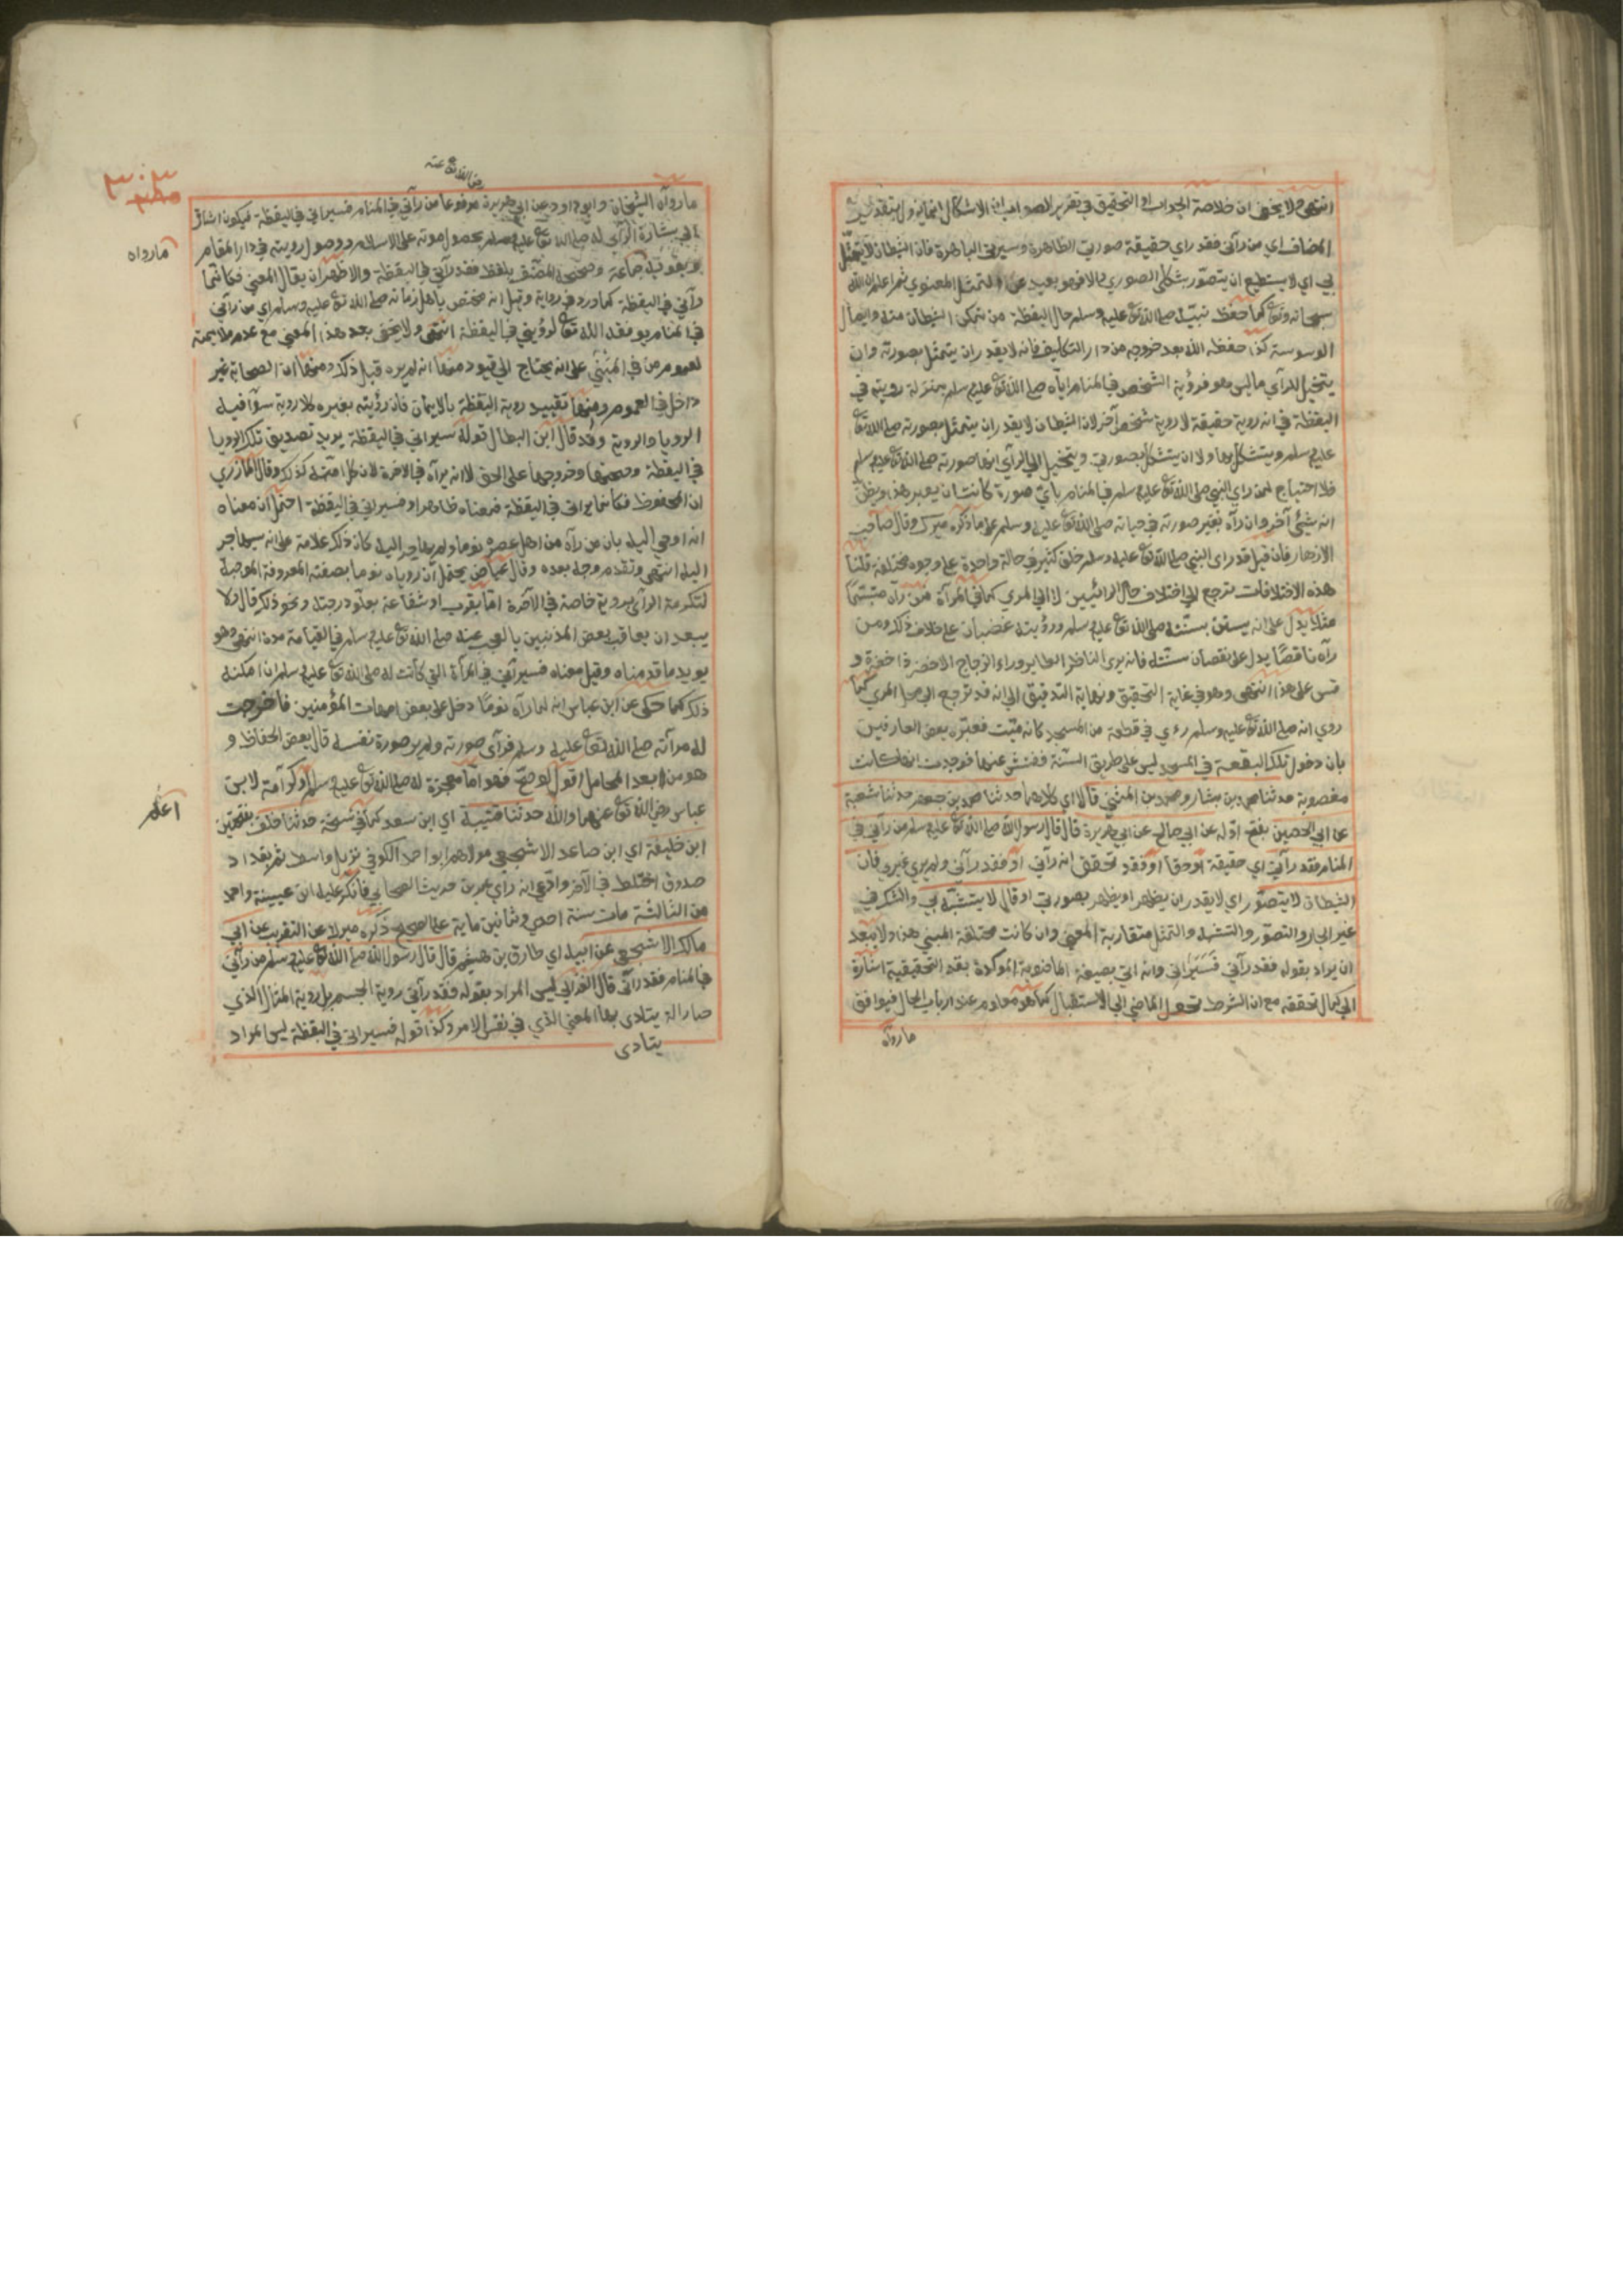 انتهى ولا يخفى ان خلاصة الجواب او التحقيق في تقرير الصواب ان الاشكال انما يزول بتقدير
المضاف اي من رآني فقد راي حقيقة صورتي الظاهرة وسيرتي الباهرة فان الشيطان لا يتمثل
بي اي لا يستطيع ان يتصوّر بشكلي الصوري والا فهو بعيد عن التمثل المعنوي ثم اعلم ان الله
سبحانه وتع كما حفظ نبيّه صلى الله تع عليه وسلم حال اليقظة من تمكن الشيطان منه وايصال
الوسوسة كذا حفظه الله بعد خروجه من دار التكليف فانه لا يقدر ان يتمثل بصورته وان
يتخيل للرآي ما ليس هو فرؤية الشخص في المنام اياه صلى الله تع عليه وسلم بمنزلة رويته في
اليقظة في انه روية حقيقة لا روية شخص آخر لان الشيطان لا يقدر ان يتمثل بصورته صلى الله تع
عليه وسلم ويتشكل بها ولا ان يتشكل بصورتي ويتخيل الي الرآي انها صورته صلى الله تع عليه وسلم
فلا احتياج لمن راي النبي صلى الله تع عليه وسلم في المنام بايّ صورة كانت ان يعبر هذا ويظنّ
انه شئ آخر وان رآه بغير صورته في حياته صلى الله تع عليه وسلم على ما ذكره ميرك وقال صاحب
الازهار فان قيل قد راى النبي صلى الله تع عليه وسلم خلق كثير في حالة واحدة على وجوه مختلفة قلنا
هذه الاختلافات ترجع الي اختلاف حال الرائيين لا الي المري كما في المرآة فمن رآه متبسّمًا
مثلا يدل على انه يستن بسنّته صلى الله تع عليه وسلم ورؤيته غضبان على خلاف ذلك ومن
رآه ناقصًا يدل على نقصان سنته فانه يرى الناظر الطاير وراء الزجاج الاخضر ذا خضرة و
قس على هذا انتهى وهو في غاية التحقيق ونهاية التدقيق الي انه قد ترجع الى محل المري كما
روي انه صلى الله تع عليه وسلم رءي في قطعة من المسجد كانه ميّت فعبّره بعض العارفين
بان دخول تلك البقعة في المسجد ليس على طريق السنّة ففتش عنها فوجدت انها كانت
مغصوبة حدثنا محمد بن بشار ومحمد بن المثنى قالا اي كلاهما حدثنا محمد بن جعفر حدثنا شعبة
عن ابي الحصين بفتح اوّله عن ابي صالح عن ابي هريرة قال قال رسول الله صلى الله تع عليه وسلم من رآني في
المنام فقد رآني اي حقيقة او حقا او فقد تحقق انه رآني او فقد رآني ولم يري غيري فان
الشيطان لا يتصوّر اي لا يقدر ان يظهر او يظهر بصورتي او قال لا يتشبّه بي والشك في
غير ابي والتصوّر والتشبه والتمثل متقاربة المعنى وان كانت مختلفة المبني هذا ولا يبعد
ان يراد بقوله فقد رآني فَسَيَرَاني وانه اتي بصيغة الماضوية المؤكدة بقد التحقيقية اشارة
الي كمال تحققه مع ان الشرط يحول الماضي الي الاستقبال كما هو معلوم عند ارباب الحال فيوافق
ما رواه
رضي الله تع عنه
ما رواه الشيخان وابو داود عن ابي هريرة مرفوعا من رآني في المنام فسيراني في اليقظة فيكون اشارة
الي بشارة الرآي له صلى الله تع عليه وسلم بحصول موته على الاسلام ووصول رويته في دار المقام
ما رواه
جماعة وصححه المصنّف بلفظ فقد رآني في اليقظة والاظهر ان يقال المعنى فكانما
رآني في اليقظة كما ورد في رواية وقيل انه مختص باهل زمانه صلى الله تع عليه وسلم اي من رآني
في المنام يوفقه الله تع لرؤيتي في اليقظة انتهى ولا يخفى بعد هذا المعنى مع عدم ملايمته
لعموم من في المَبْنَي على انه يحتاج الي قيود منها انه لم يره قبل ذلك ومنها ان الصحابة غير
داخل في العموم ومنها تقييد روية اليقظة بالايمان فان رؤيته بغيره كلا روية سوآ فيه
الرويا والروية وقد قال ابن البطال قوله سيراني في اليقظة يريد تصديق تلك الرويا
في اليقظة وصحتها وخروجها على الحق لا انه يرآه في الاخرة لان كل امّته كذلك وقال المازري
ان المحفوظ فكأنما يراني في اليقظة فمعناه ظاهر او فسيراني في اليقظة احتمل ان معناه
انه اوحي اليه بان من رآه من اهل عصره نوما ولم يهاجر اليه كان ذلك علامة على انه سيهاجر
اليه انتهى وتقدم وجه بعده وقال عياض يحتمل ان روياه نوما بصفته المعروفة الموجبة
لتكرمة الرآي بروية خاصة في الآخرة امّا بقرب او شفاعة بعلوّ درجته ونحو ذلك قال ولا
يبعد ان يعاقب بعض المذنبين بالحجب عنه صلى الله تع عليه وسلم في القيامة مدة انتهى وهو
يويد ما قدمناه وقيل معناه فسيرآني في المرآة التي كانت له صلى الله تع عليه وسلم ان امكنه
ذلك كما حكى عن ابن عباس انه لما رآه نومًا دخل على بعض امهات المؤمنين فاخرجت
له مرآته صلى الله تع عليه وسلم فرآى صورته ولم ير صورة نفسه قال بعض الحفاظ و
هو من ابعد المحامل اقول لو صحّ فهو اما معجزة له صلى الله تع عليه وسلم او كرآمة لابن
عباس رضي الله تع عنهما والله حدثنا قتيبة اي ابن سعد كما في نسخة حدثنا خلف بفتحتين
آعلم
ابن خليفة اي ابن صاعد الاشجعي مولاهم ابو احمد الكوفي نزيل واسط ثم بغداد
صدوق اختلط في الآخر وادّعى انه راي عمرو بن حريث الصحابي فانكر عليه ابن عيينة واحمد
من الثالثة مات سنة احدي وثمانين ماية على الصحيح ذكره ميرك عن التقريب عن ابي
مالك الاشجعي عن ابيه اي طارق بن هشيم قال قال رسول الله صلى الله تع عليه وسلم من رآني
في المنام فقد رآني قال الغزالي ليس المراد بقوله فقد رآني روية الجسم بل روية المثال الذي
صار آلة يتادى بها المعنى الذي في نفس الامر وكذا قوله فسيراني في اليقظة ليس المراد
يتادى